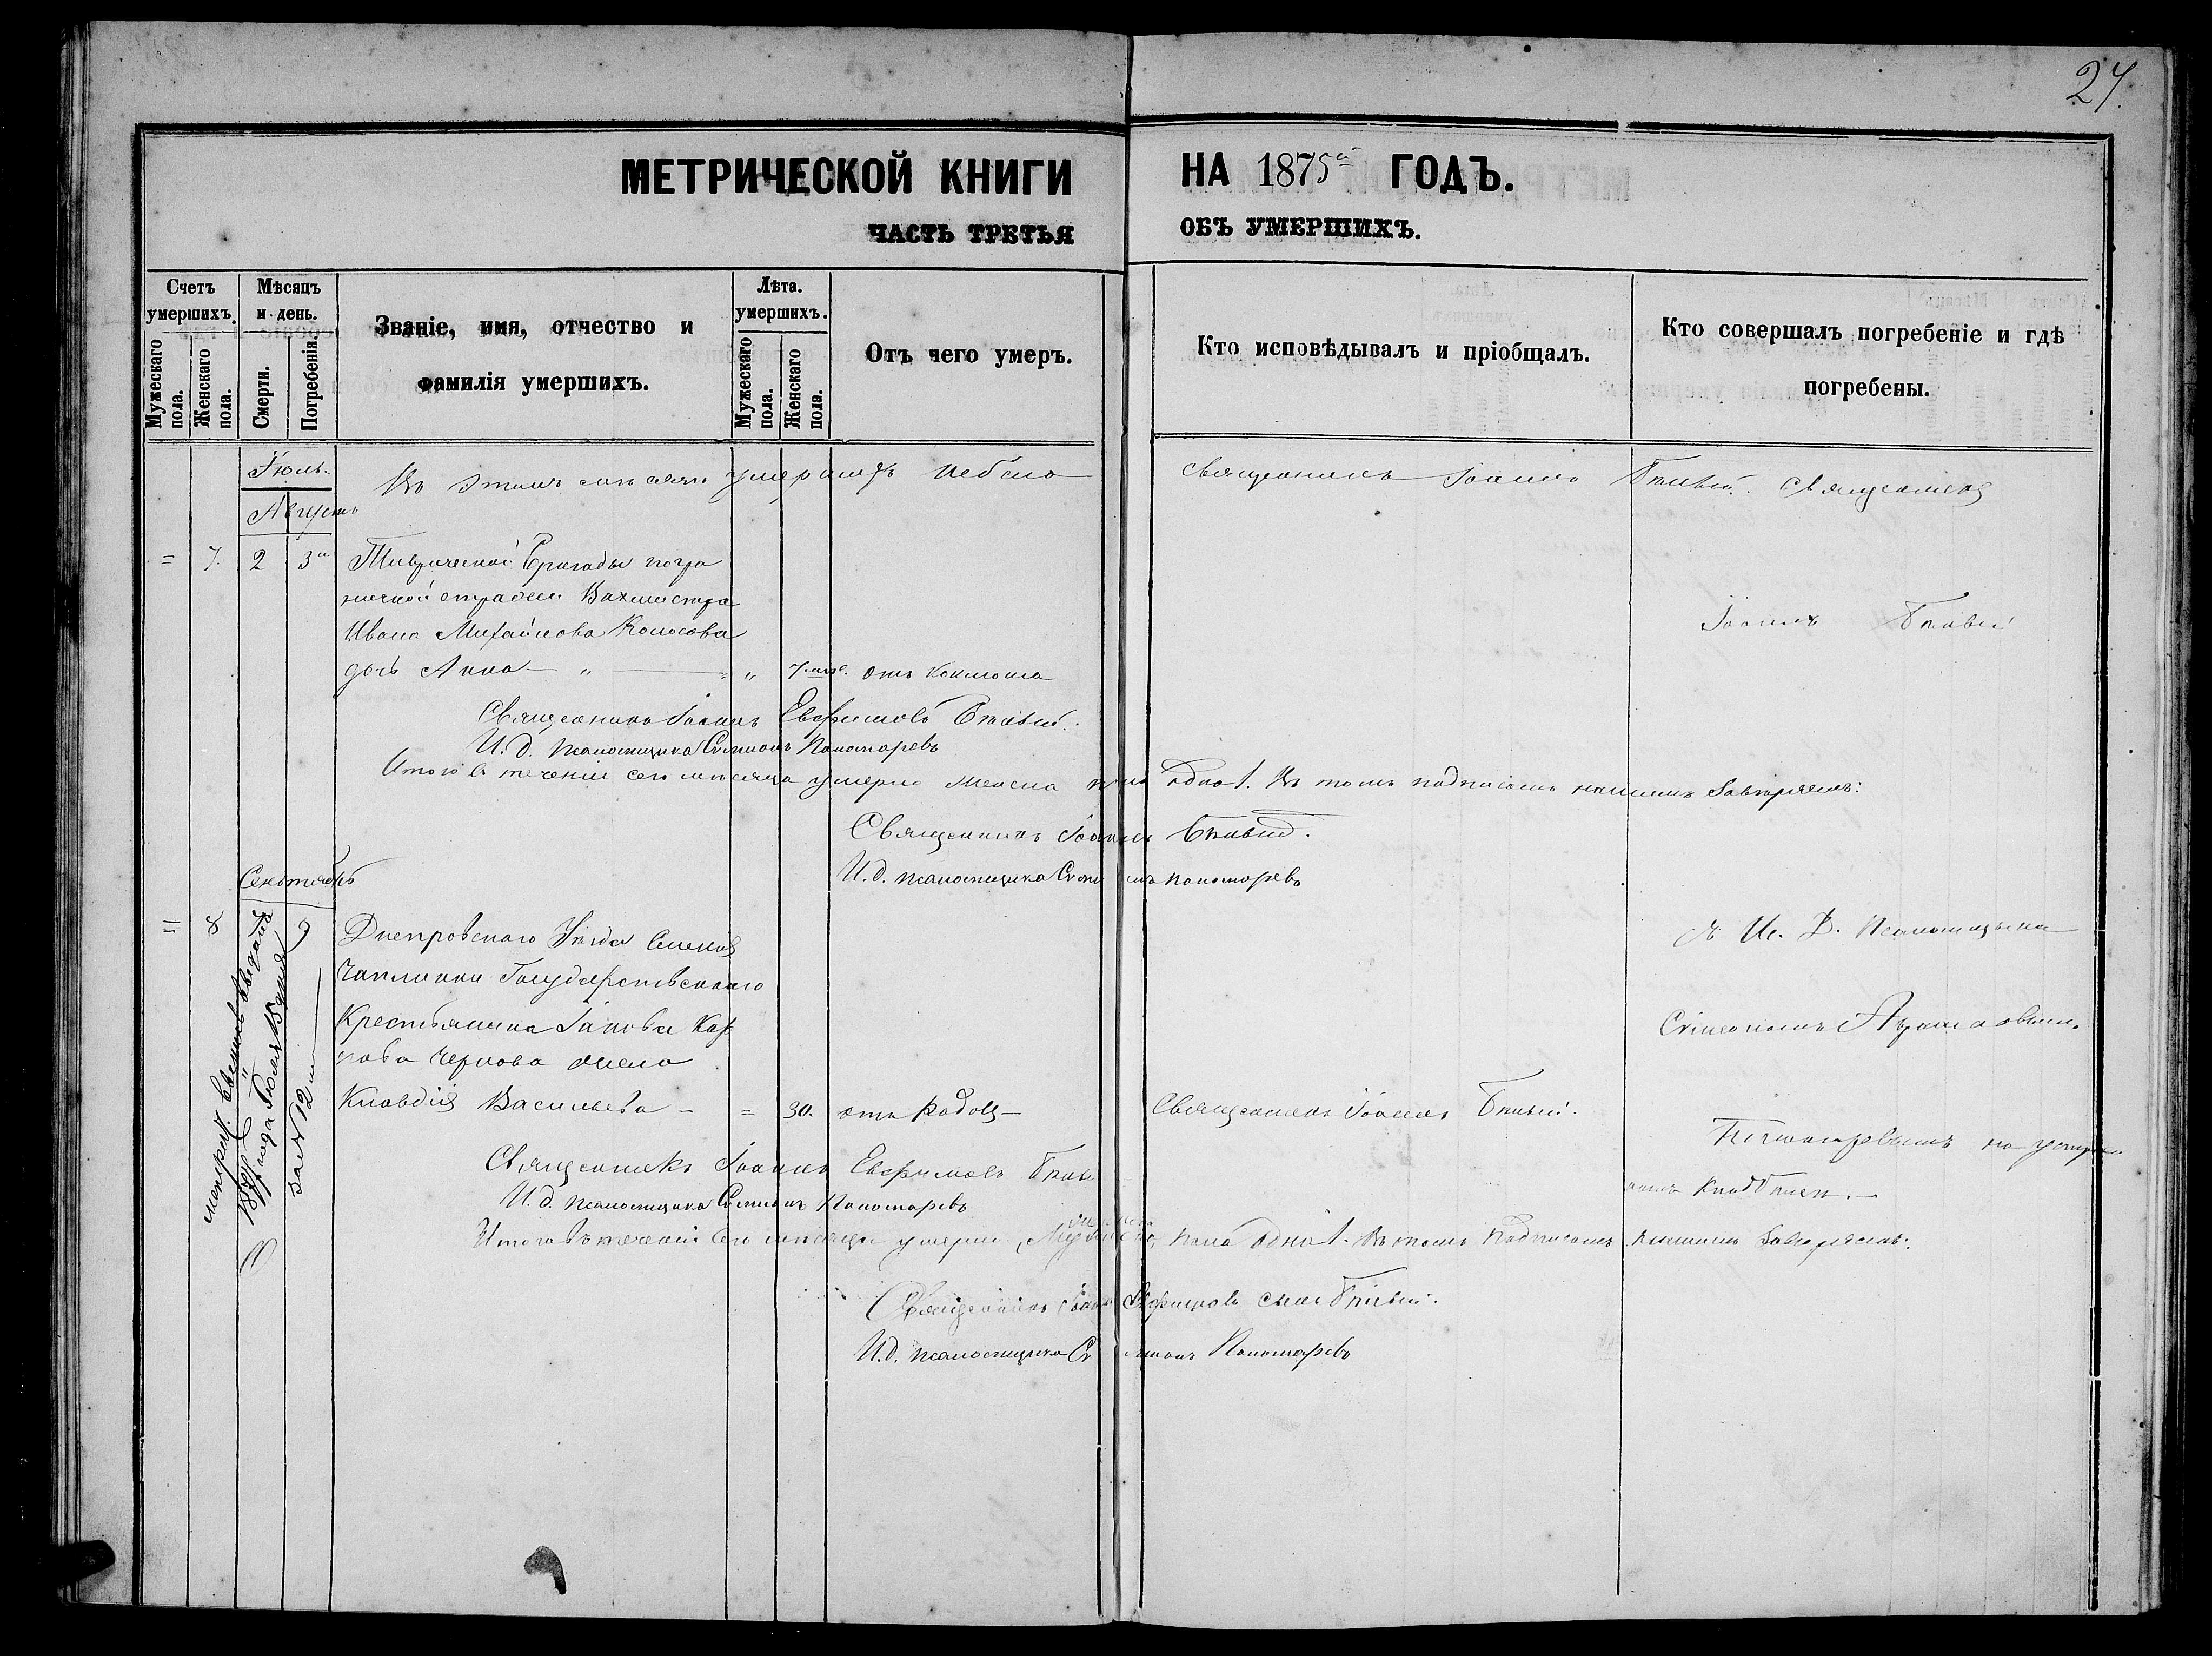 27.
МЕТРИЧЕСКОЙ КНИГИ НА 1875й ГОДЪ.
ЧАСТЬ ТРЕТЬЯ ОБЪ УМЕРШИХЪ.
Счетъ умершихъ.
Мужескаго пола.
Женскаго пола.
Мѣсяцъ и день.
Смерти.
Погребенія.
Званіе, имя, отчество и
фамилія умершихъ.
Лѣта умершихъ.
Мужескаго пола.
Женскаго пола.
Отъ чего умеръ.
Кто исповѣдывалъ и пріобщалъ.
Кто совершалъ погребеніе и гдѣ
погребены.
Іюль
Въ этомъ мѣсяцѣ умершихъ небыло
Священникъ Іоаннъ
Священникъ
Августъ
= 7. 2 3
Таврической Бригады погра
ничной стражи Вахмистра
Ивана Михайлова Колосова
дочь Анна — " — " 7 мѣс. отъ коклюша
Іоаннъ
Священникъ Іоаннъ Евфимовъ
И. д. псаломщика Симеонъ Пономаревъ
Итого въ теченіи сего мѣсяца умерло Женска пола одна 1. Въ томъ подписомъ нашимъ Завѣряемъ:
Священникъ Іоаннъ
И. д. псаломщика Симеонъ Пономаревъ
Сентябрь
= 8 9
Днепровскаго Уѣзда Селенія
Чаплинки Государственнаго
Крестьянина Іакова Кар
пова Чернова жена
Клавдія Васильева — = 30. отъ родовъ —
Священникъ Іоаннъ
съ Ис. Д. Псаломщика
Симеономъ
Пономаревымъ на
1878 года Іюля 15 дня
за № 12
Священникъ Іоаннъ Евфимовъ
И. д. псаломщика Симеонъ Пономаревъ
Итого въ теченіи сего мѣсяца умерло Женска пола одна 1. Въ томъ подписомъ нашимъ Завѣряемъ:
Священникъ Іоаннъ Евфимовъ сынъ
И. д. псаломщика Симеонъ Пономаревъ